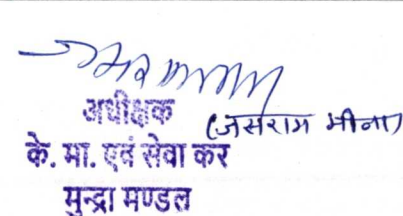 अधीक्षक
(जसराम मीना)
के. मा. एवं सेवा कर
मुन्द्रा मण्डल